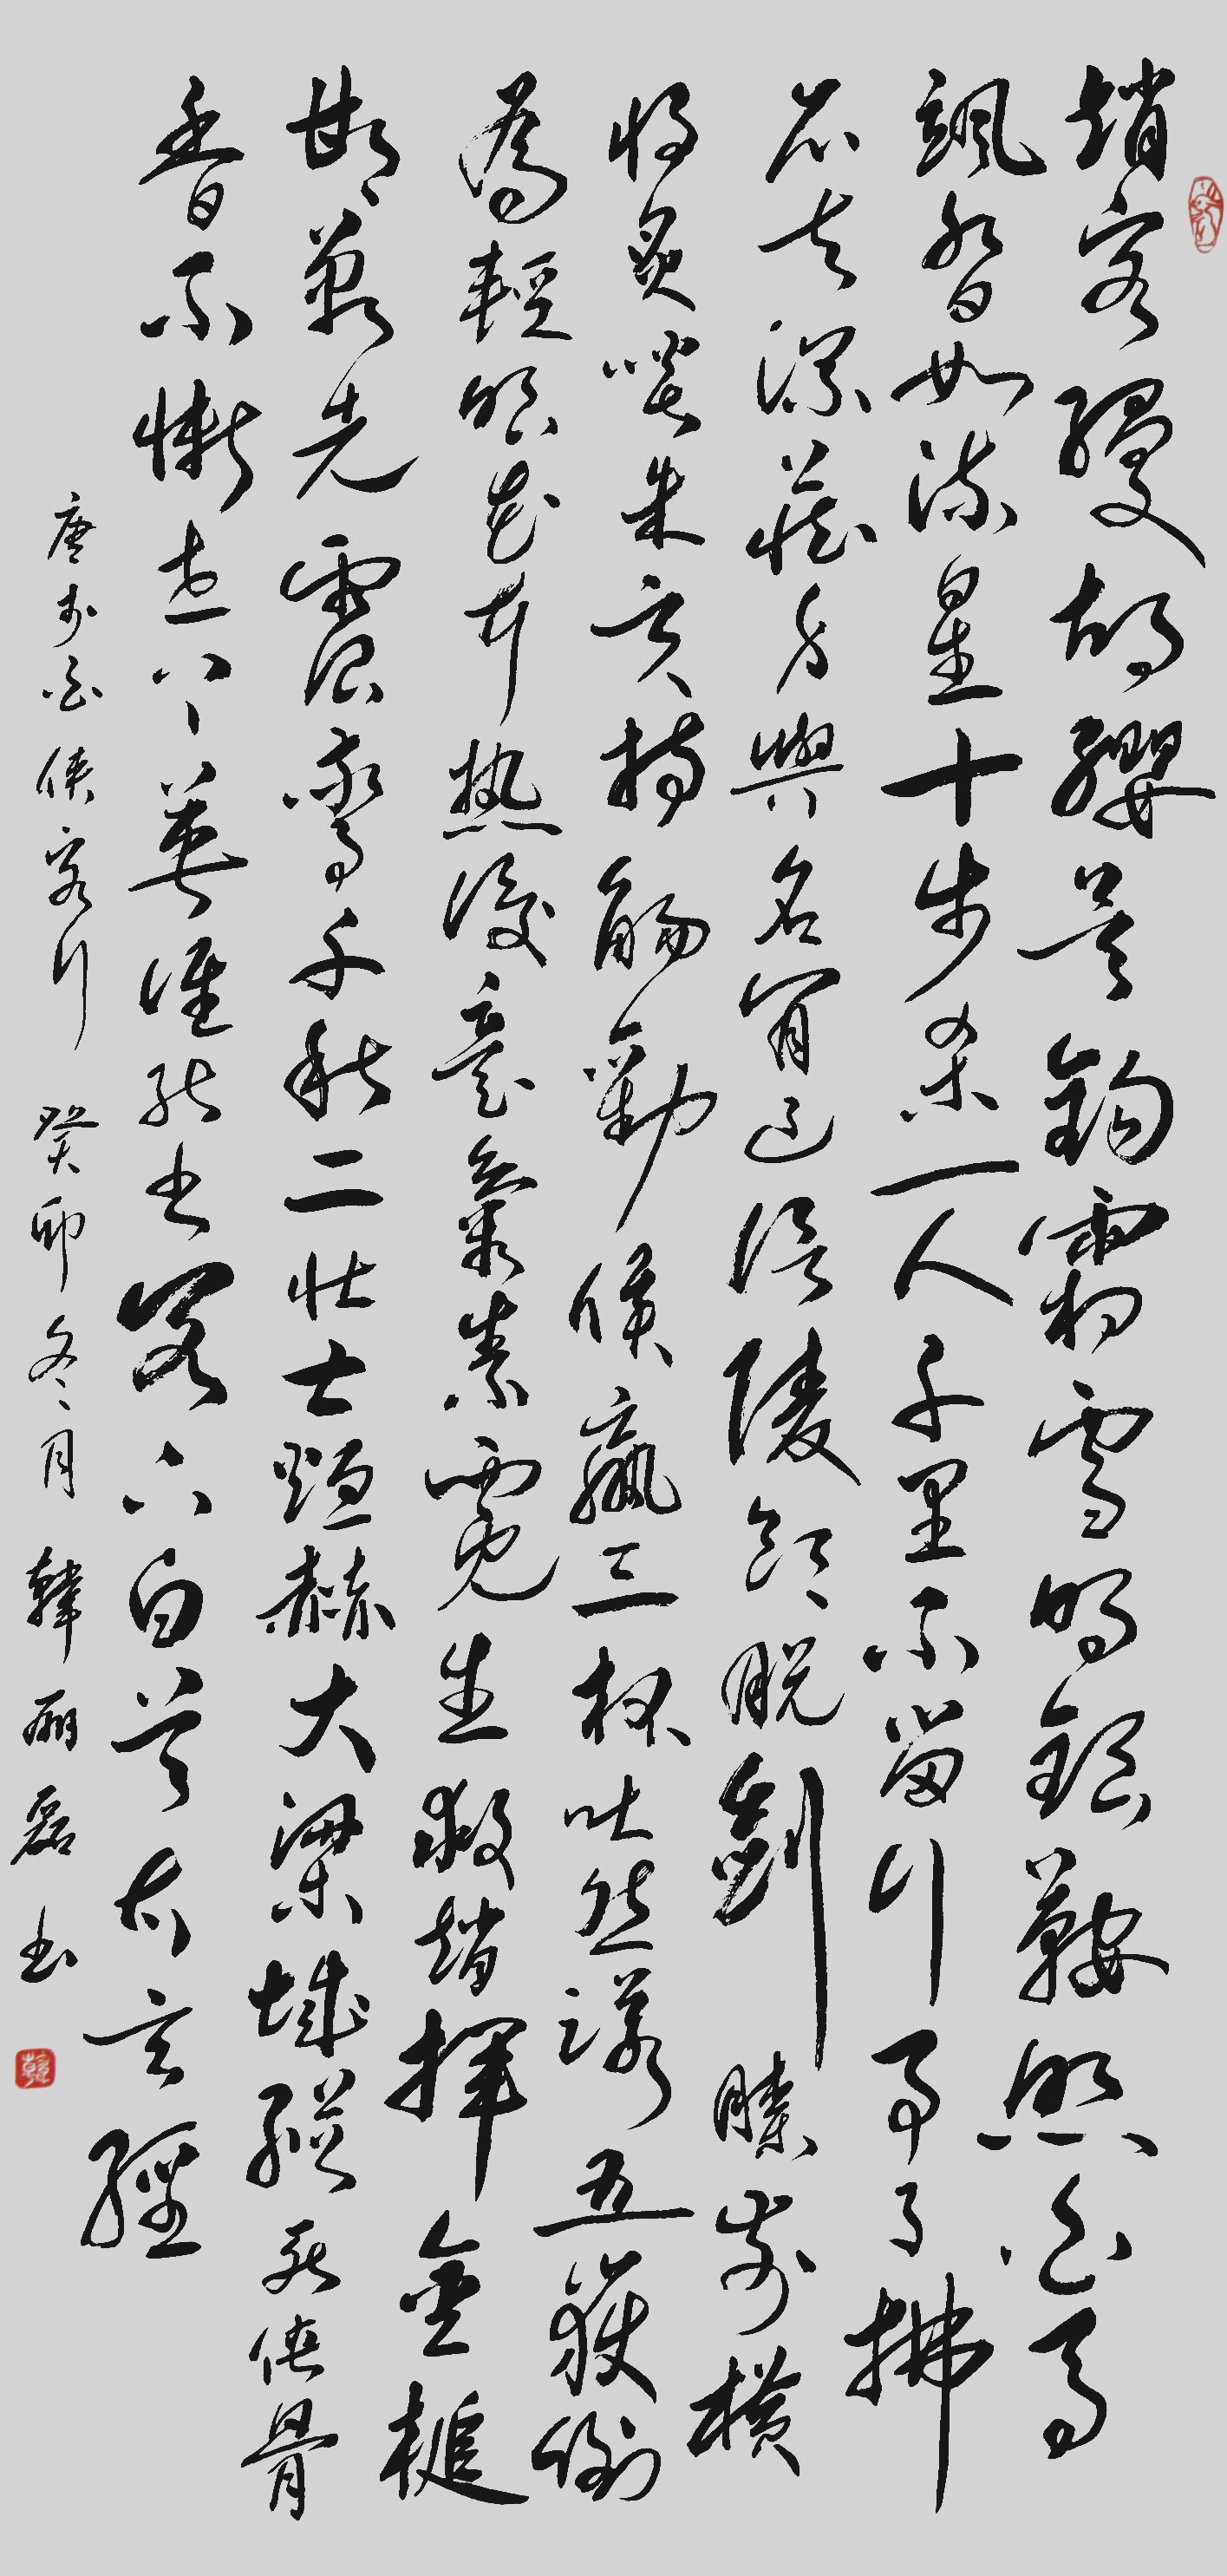 趙客縵胡纓吳鉤霜雪明銀鞍照白馬
颯沓如流星十步殺一人千里不留行事了拂
衣去深藏身與名閒過信陵飲脫劍膝前橫
將炙啖朱亥持觴勸侯嬴三杯吐然諾五嶽倒
為輕眼花耳熱後意氣素霓生救趙揮金槌
邯鄲先震驚千秋二壯士烜赫大梁城縱死俠骨
香不慚世上英誰能書閣下白首太玄經
唐李白俠客行 癸卯冬月 韓丽磊書
韓